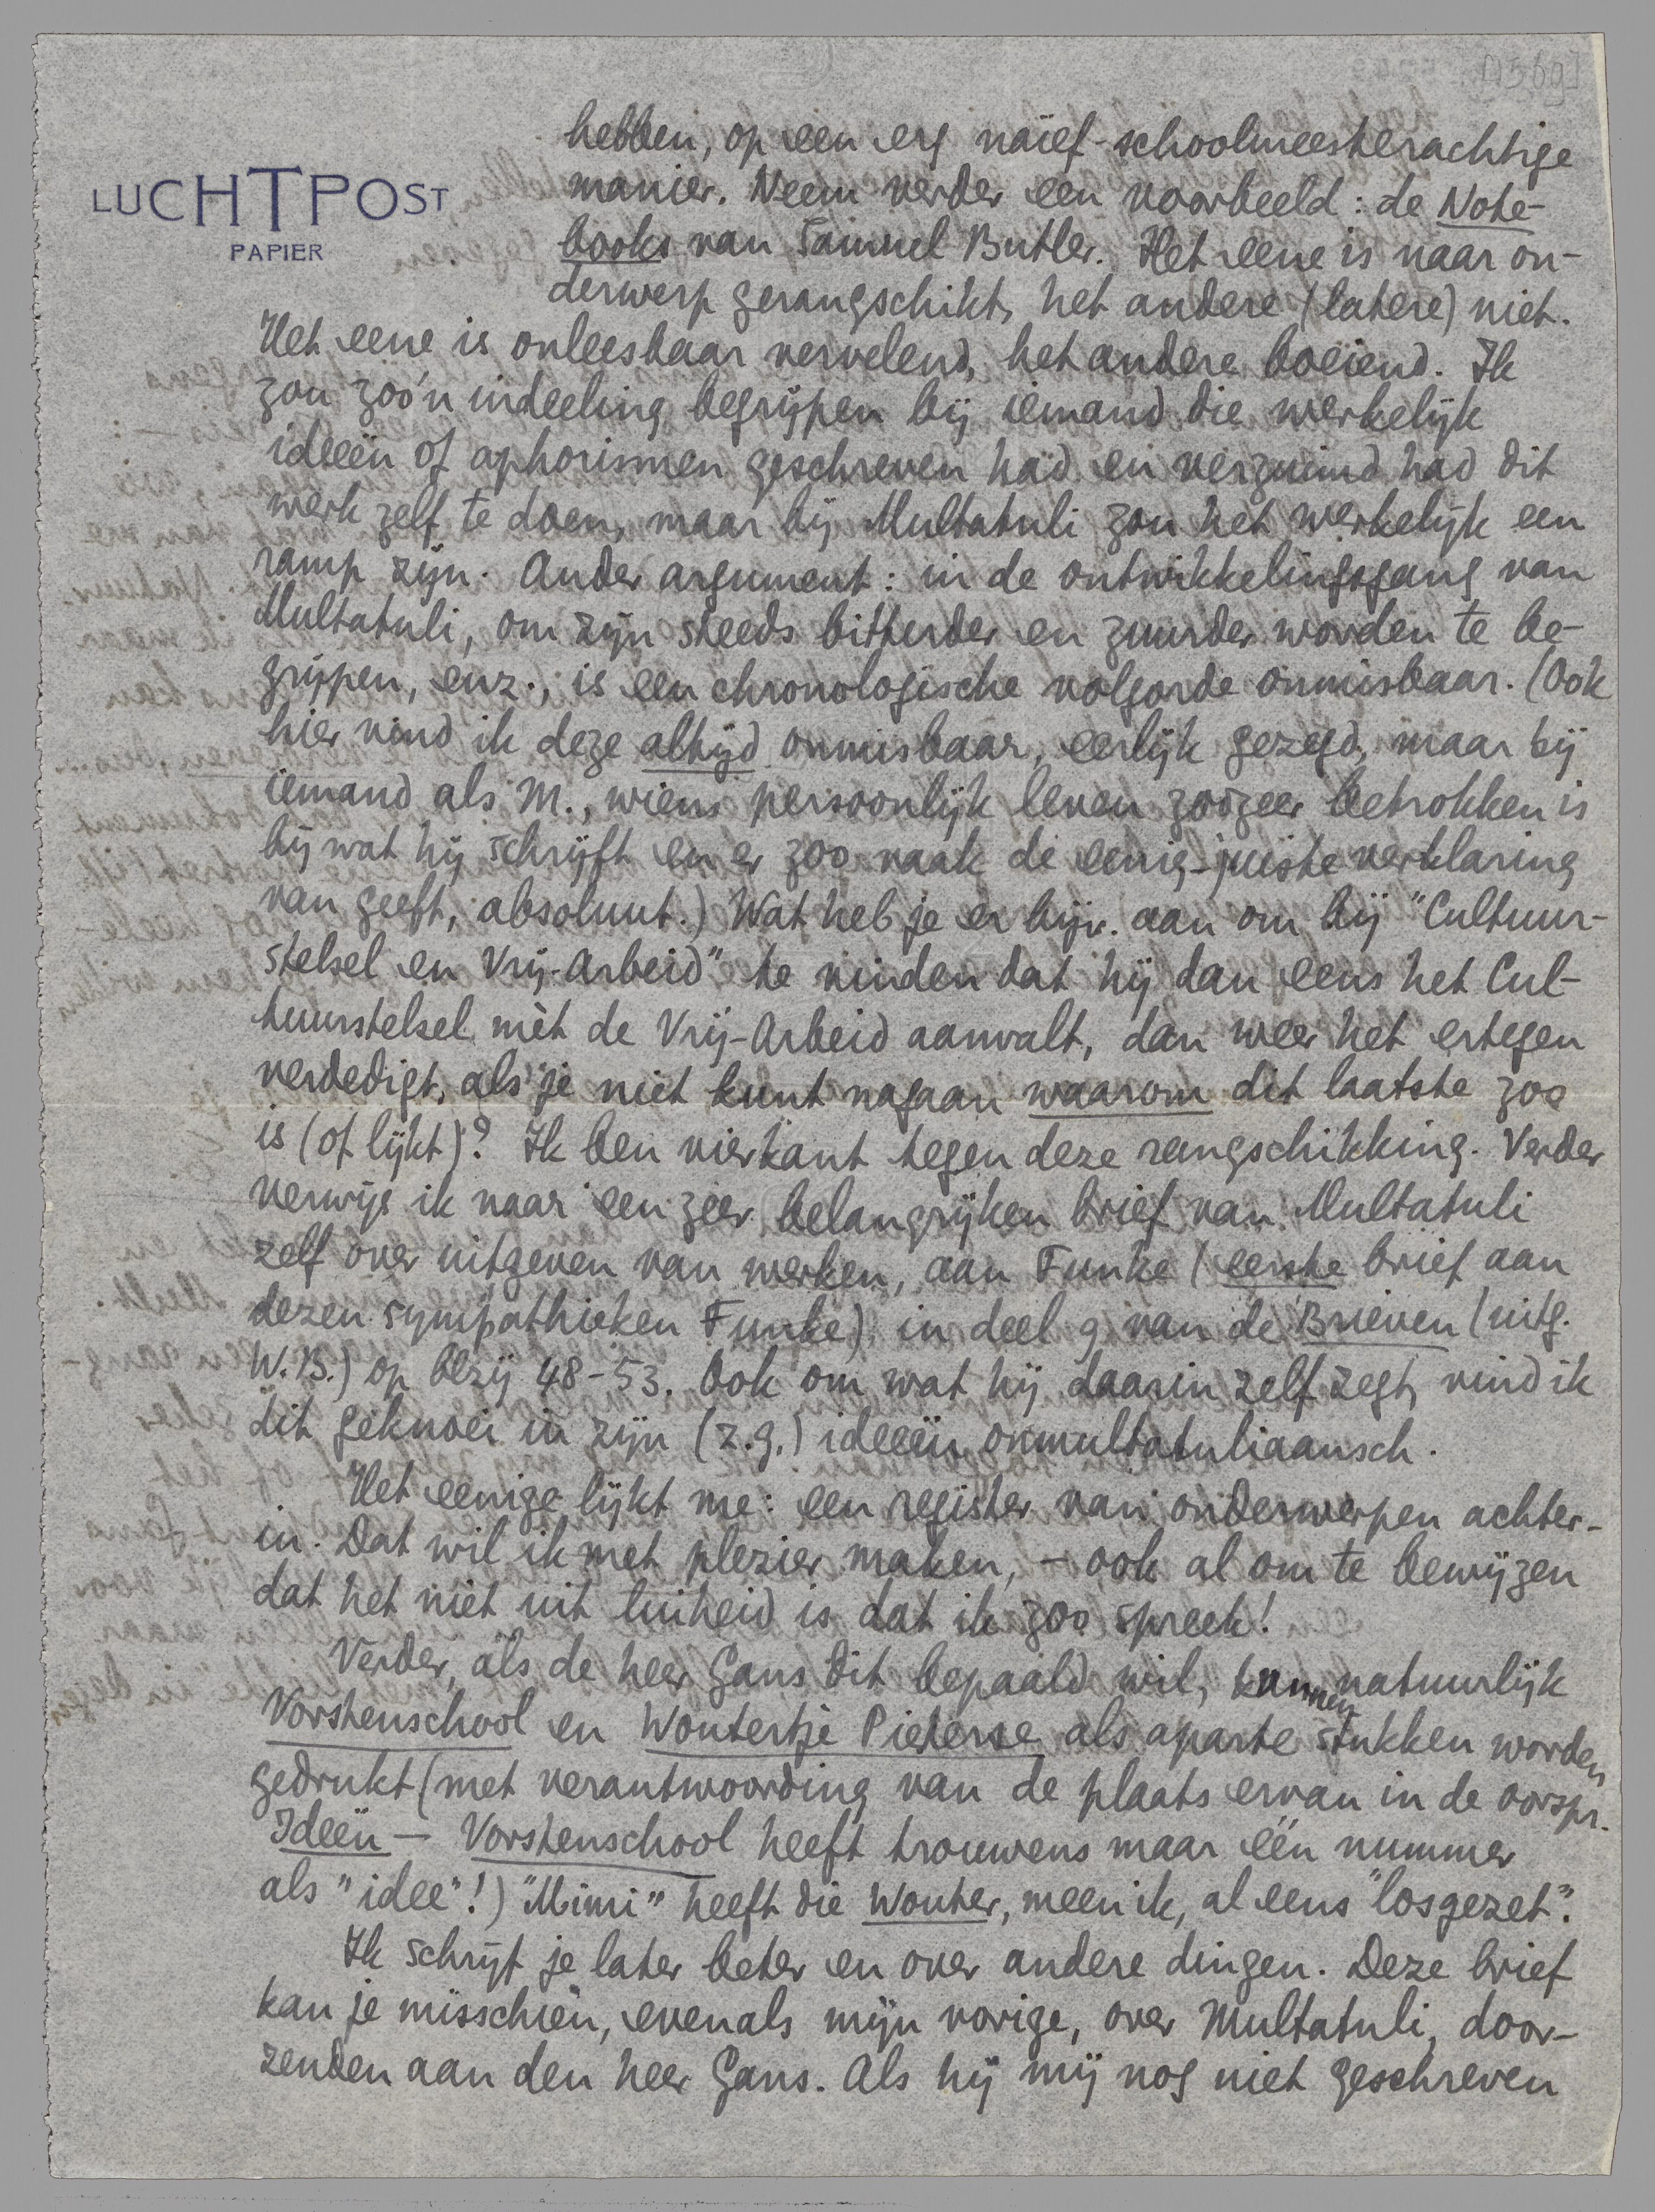 [1569]
LUCHTPOST
PAPIER
hebben, op een erg naïef-schoolmeesterachtige
manier. Neem verder een voorbeeld: de Note-
books van Samuel Butler. Het eene is naar on-
derwerp gerangschikt, het andere (latere) niet.
Het eene is onleesbaar vervelend, het andere boeiend. Ik
zou zoo'n indeeling begrijpen bij iemand die werkelijk
ideeën of aphorismen geschreven had en verzuimd had dit
werk zelf te doen, maar bij Multatuli zou het werkelijk een
ramp zijn. Ander argument: in de ontwikkelingsgang van
Multatuli, om zijn steeds bitterder en zuurder worden te be-
grijpen, enz., is een chronologische volgorde onmisbaar. (Ook
hier vind ik deze altijd onmisbaar, eerlijk gezegd, maar bij
iemand als M., wiens persoonlijk leven zoozeer betrokken is
bij wat hij schrijft en er zoo vaak de eenig-juiste verklaring
van geeft, absoluut.) Wat heb je er bijv. aan om bij "Cultuur-
stelsel en Vrij-Arbeid" te vinden dat hij dan eens het Cul-
tuurstelsel mèt de Vrij-Arbeid aanvalt, dan weer het ertegen
verdedigt, als je niet kunt nagaan waarom dit laatste zoo
is (of lijkt)? Ik ben vierkant tegen deze rangschikking. Verder
verwijs ik naar een zeer belangrijken brief van Multatuli
zelf over uitgeven van werken, aan Funke (eerste brief aan
dezen sympathieken Funke) in deel 9 van de Brieven (uitg.
W.B.) op blzij 48-53. Ook om wat hij daarin zelf zegt, vind ik
dit geknoei in zijn (z.g.) ideeën onmultatuliaansch.
Het eenige lijkt me: een register van onderwerpen achter-
in. Dat wil ik met plezier maken, – ook al om te bewijzen
dat het niet uit luiheid is dat ik zoo spreek!
Verder, als de heer Gans dit bepaald wil, kunnen natuurlijk
Vorstenschool en Woutertje Pieterse als aparte stukken worden
gedrukt (met verantwoording van de plaats ervan in de oorspr.
Ideën – Vorstenschool heeft trouwens maar één nummer
als "idee"!) "Mimi" heeft die Wouter, meen ik, al eens "losgezet".
Ik schrijf je later beter en over andere dingen. Deze brief
kan je misschien, evenals mijn vorige, over Multatuli, door-
zenden aan den heer Gans. Als hij mij nog niet geschreven